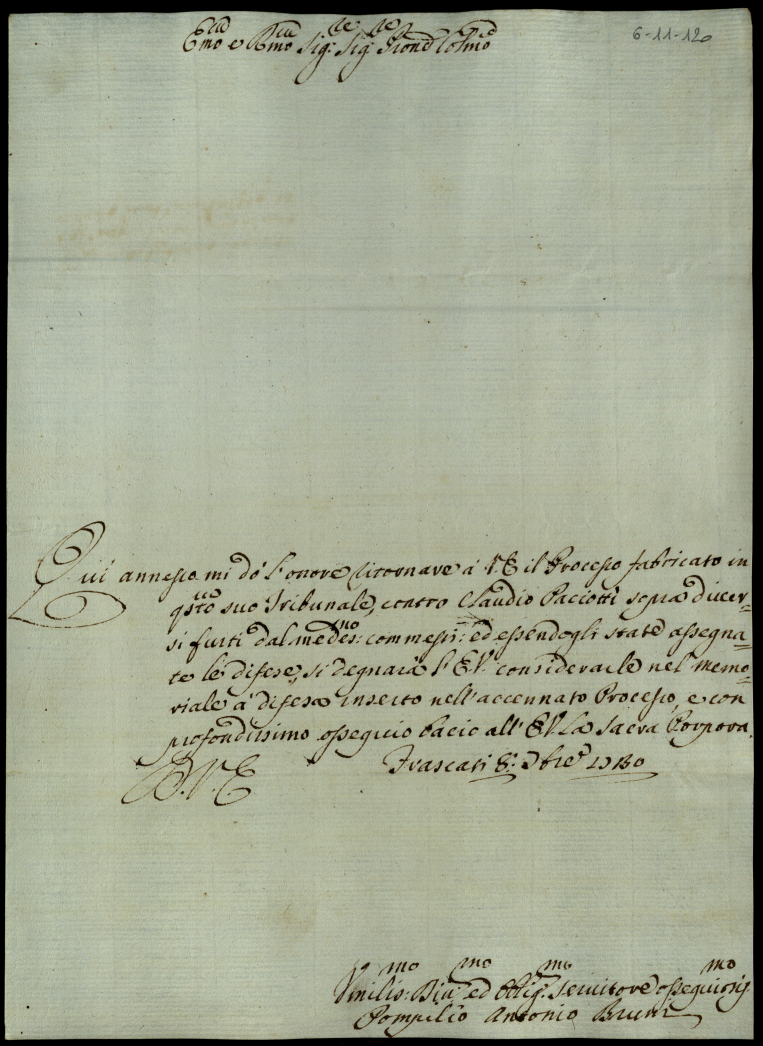 6-11-120
Emo e Rmo Sig.re Sig.re Pron Colmo
Quì annesso mi dò l'onore ritornare à V.E. il Processo fabricato in
qsto suo Tribunale, contro Claudio Paciotti sopra diver-
si furti dal medesmo: commessi: ed essendogli state assegna=
te le difese, si degnarà l'E.V. considerarle nel memo=
riale à difesa inserto nell'accennato Processo, e con
profondissimo ossequio bacio all'E.V. La Sacra Porpora.
D.V.E. Frascati 8: Xbre
Umilis:mo Div:mo ed Oblig:mo Servitore ossequiosis:mo
Pompilio Antonio Bruni